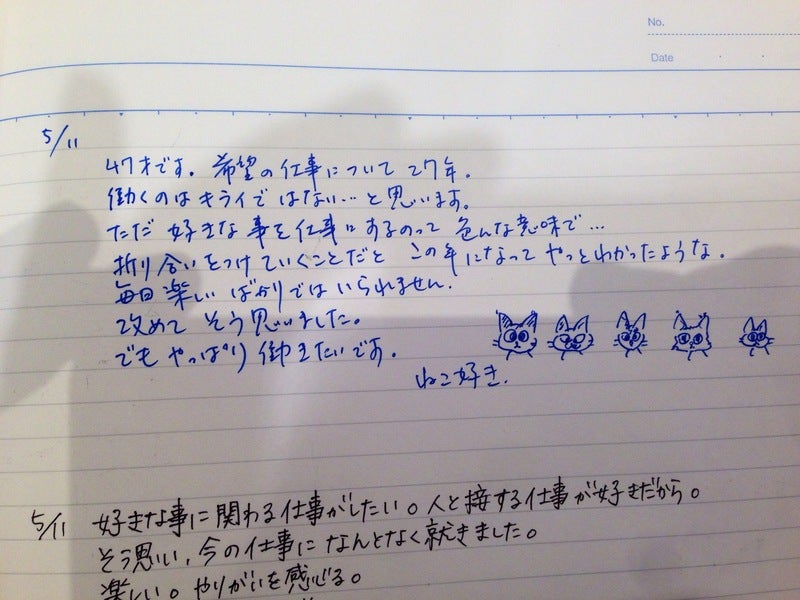 No.
Date
5/11
47才です。希望の仕事について27年。
働くのはキライではない…と思います。
ただ好きな事を仕事にするのって色んな意味で…
折り合いをつけていくことだとこの年になってやっとわかったような。
毎日楽しいばかりではいられません。
改めてそう思いました。
でもやっぱり働きたいです。
ねこ好き.
5/11 好きな事に関わる仕事がしたい。人と接する仕事が好きだから。
そう思い、今の仕事になんとなく就きました。
楽しい。やりがいを感じる。